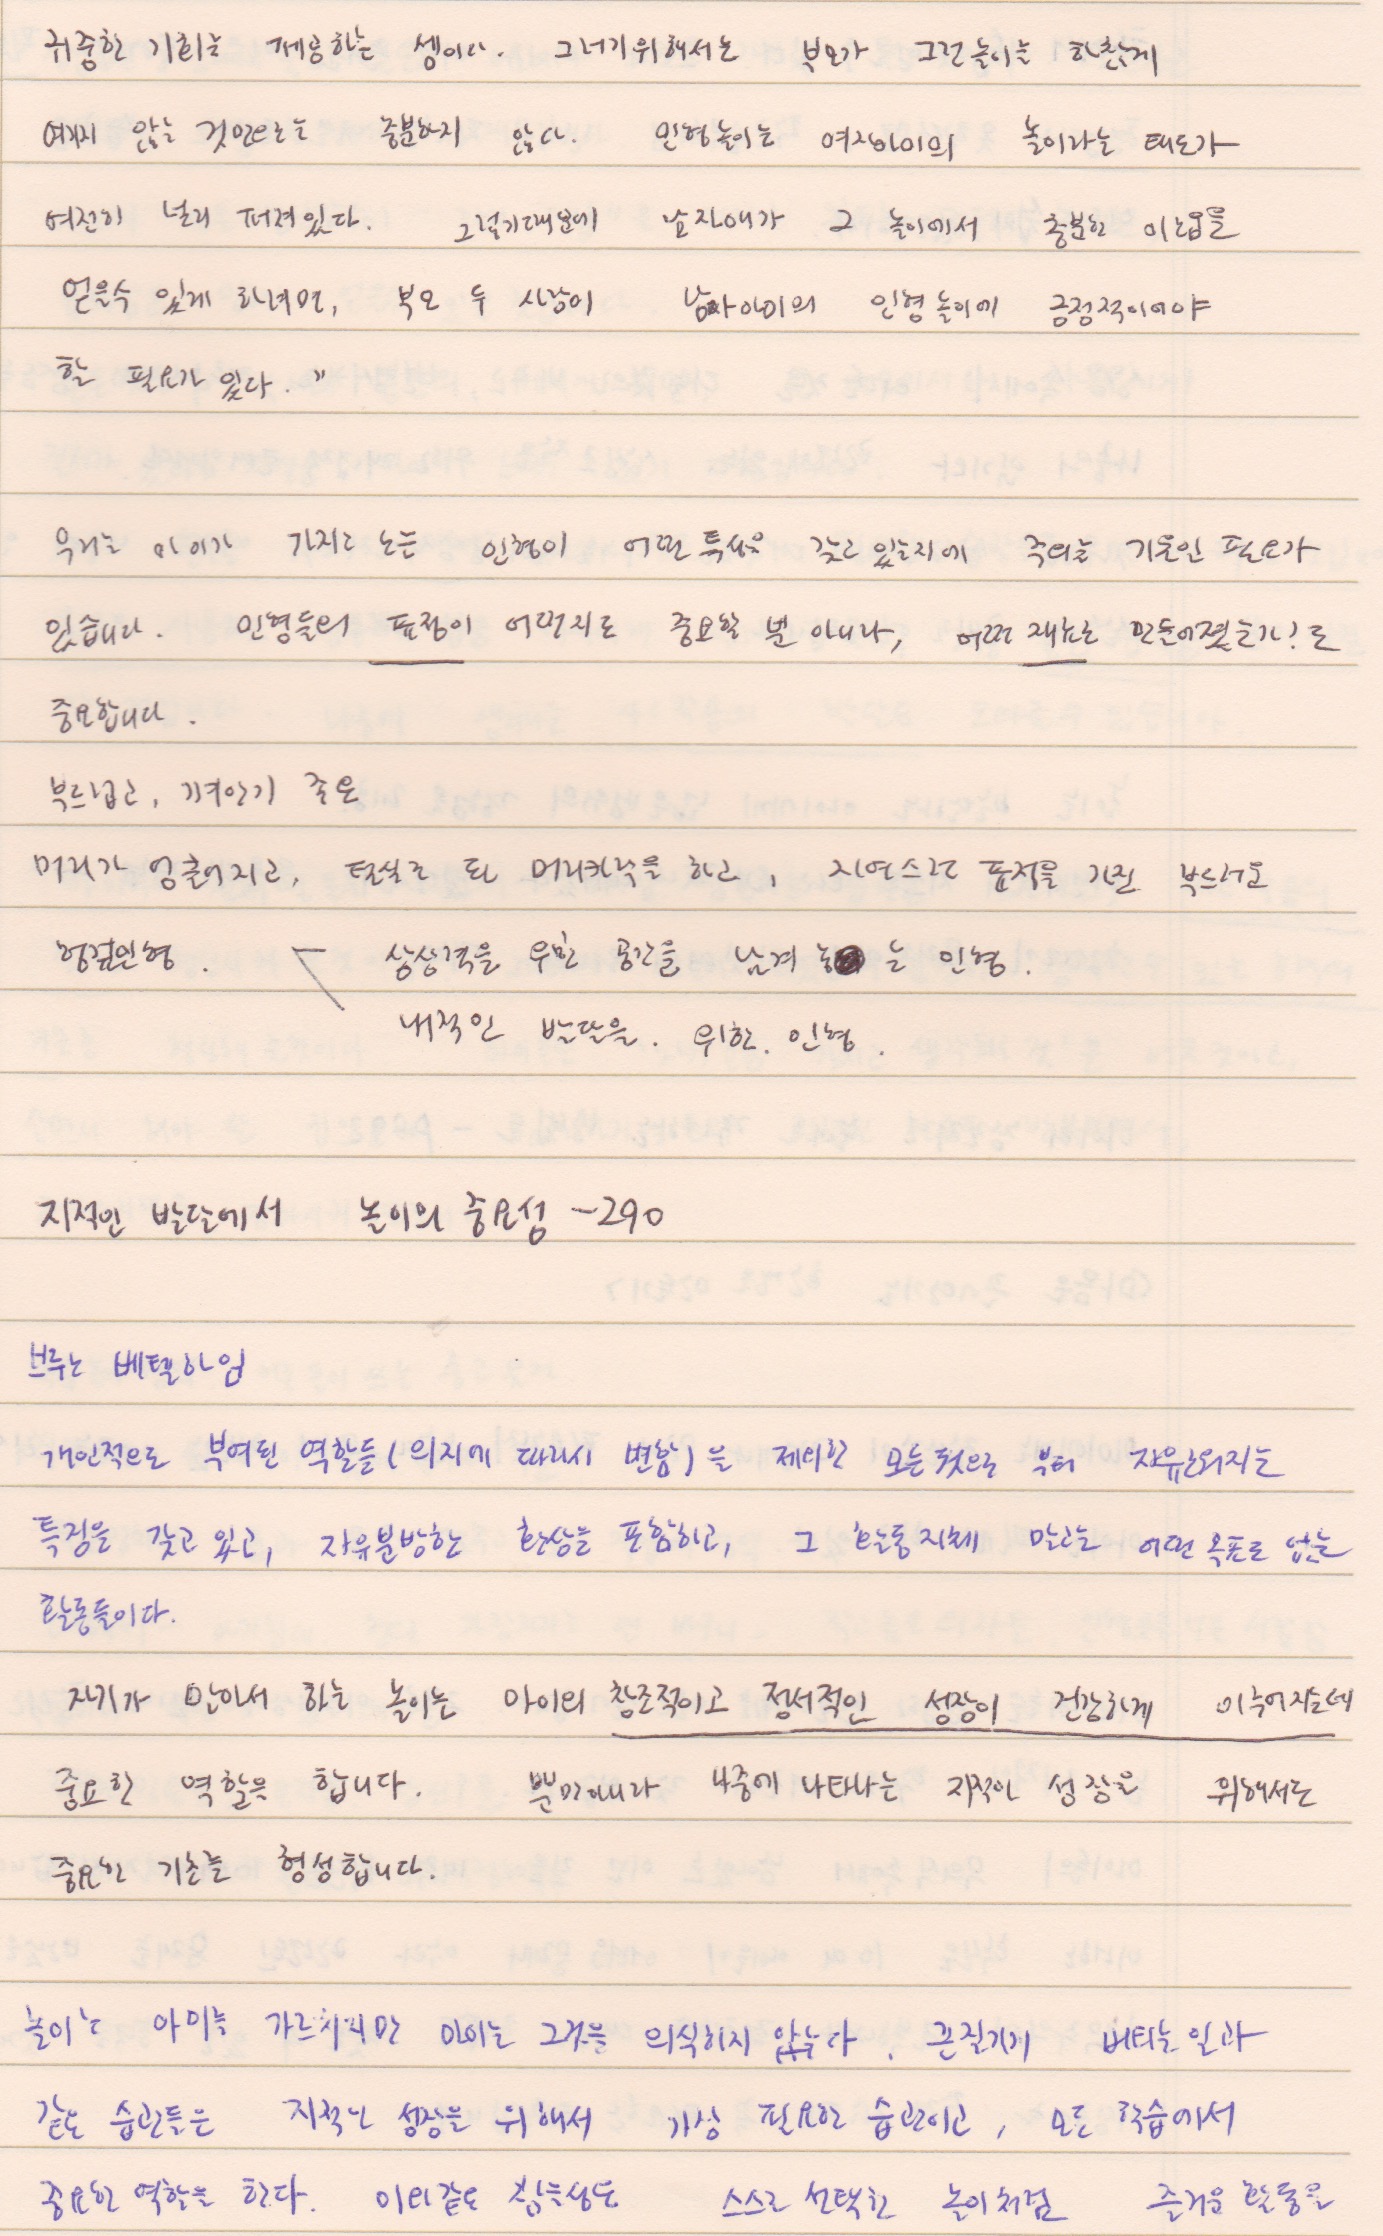 귀중한 기회를 제공하는 셈이다. 그러기위해서는 부모가 그런놀이를 하찮게
여기지 않는 것만으로는 충분하지 않다. 인형놀이는 여자아이의 놀이라는 태도가
여전히 널리 퍼져있다. 그렇기때문에 남자애가 그 놀이에서 충분한 이득을
얻을수 있게 하려면, 부모 두 사람이 남자아이의 인형놀이에 긍정적이어야
할 필요가 있다."
우리는 아이가 가지고 노는 인형이 어떤 특성을 갖고 있는지에 주의를 기울일 필요가
있습니다. 인형들의 표정이 어떤지도 중요할 뿐 아니라, 어떤 재료로 만들어졌는가!도
중요합니다.
부드럽고, 껴안기 좋은
머리가 엉클어지고, 털실로 된 머리카락을 하고, 자연스런 표정을 가진 부드러운
헝겊인형. 상상력을 위한 공간을 남겨 놓는 인형.
내적인 발달을. 위한. 인형.
지적인 발달에서 놀이의 중요성 -290
브루노 베텔하임
개인적으로 부여된 역할들(의지에 따라서 변함)을 제외한 모든것으로 부터 자유로워지는
특징을 갖고 있고, 자유분방한 환상을 포함하고, 그 활동자체 말고는 어떤 목표도 없는
활동들이다.
자기가 알아서 하는 놀이는 아이의 창조적이고 정서적인 성장이 건강하게 이루어지는데
중요한 역할을 합니다. 뿐만아니라 나중에 나타나는 지적인 성장을 위해서도
중요한 기초를 형성합니다.
놀이는 아이를 가르치지만 아이는 그것을 의식하지 않는다. 끈질기게 버티는 일과
같은 습관들은 지적인 성장을 위해서 가장 필요한 습관이고, 모든 학습에서
중요한 역할을 한다. 이와같은 참을성도 스스로 선택한 놀이처럼 즐거운 활동을